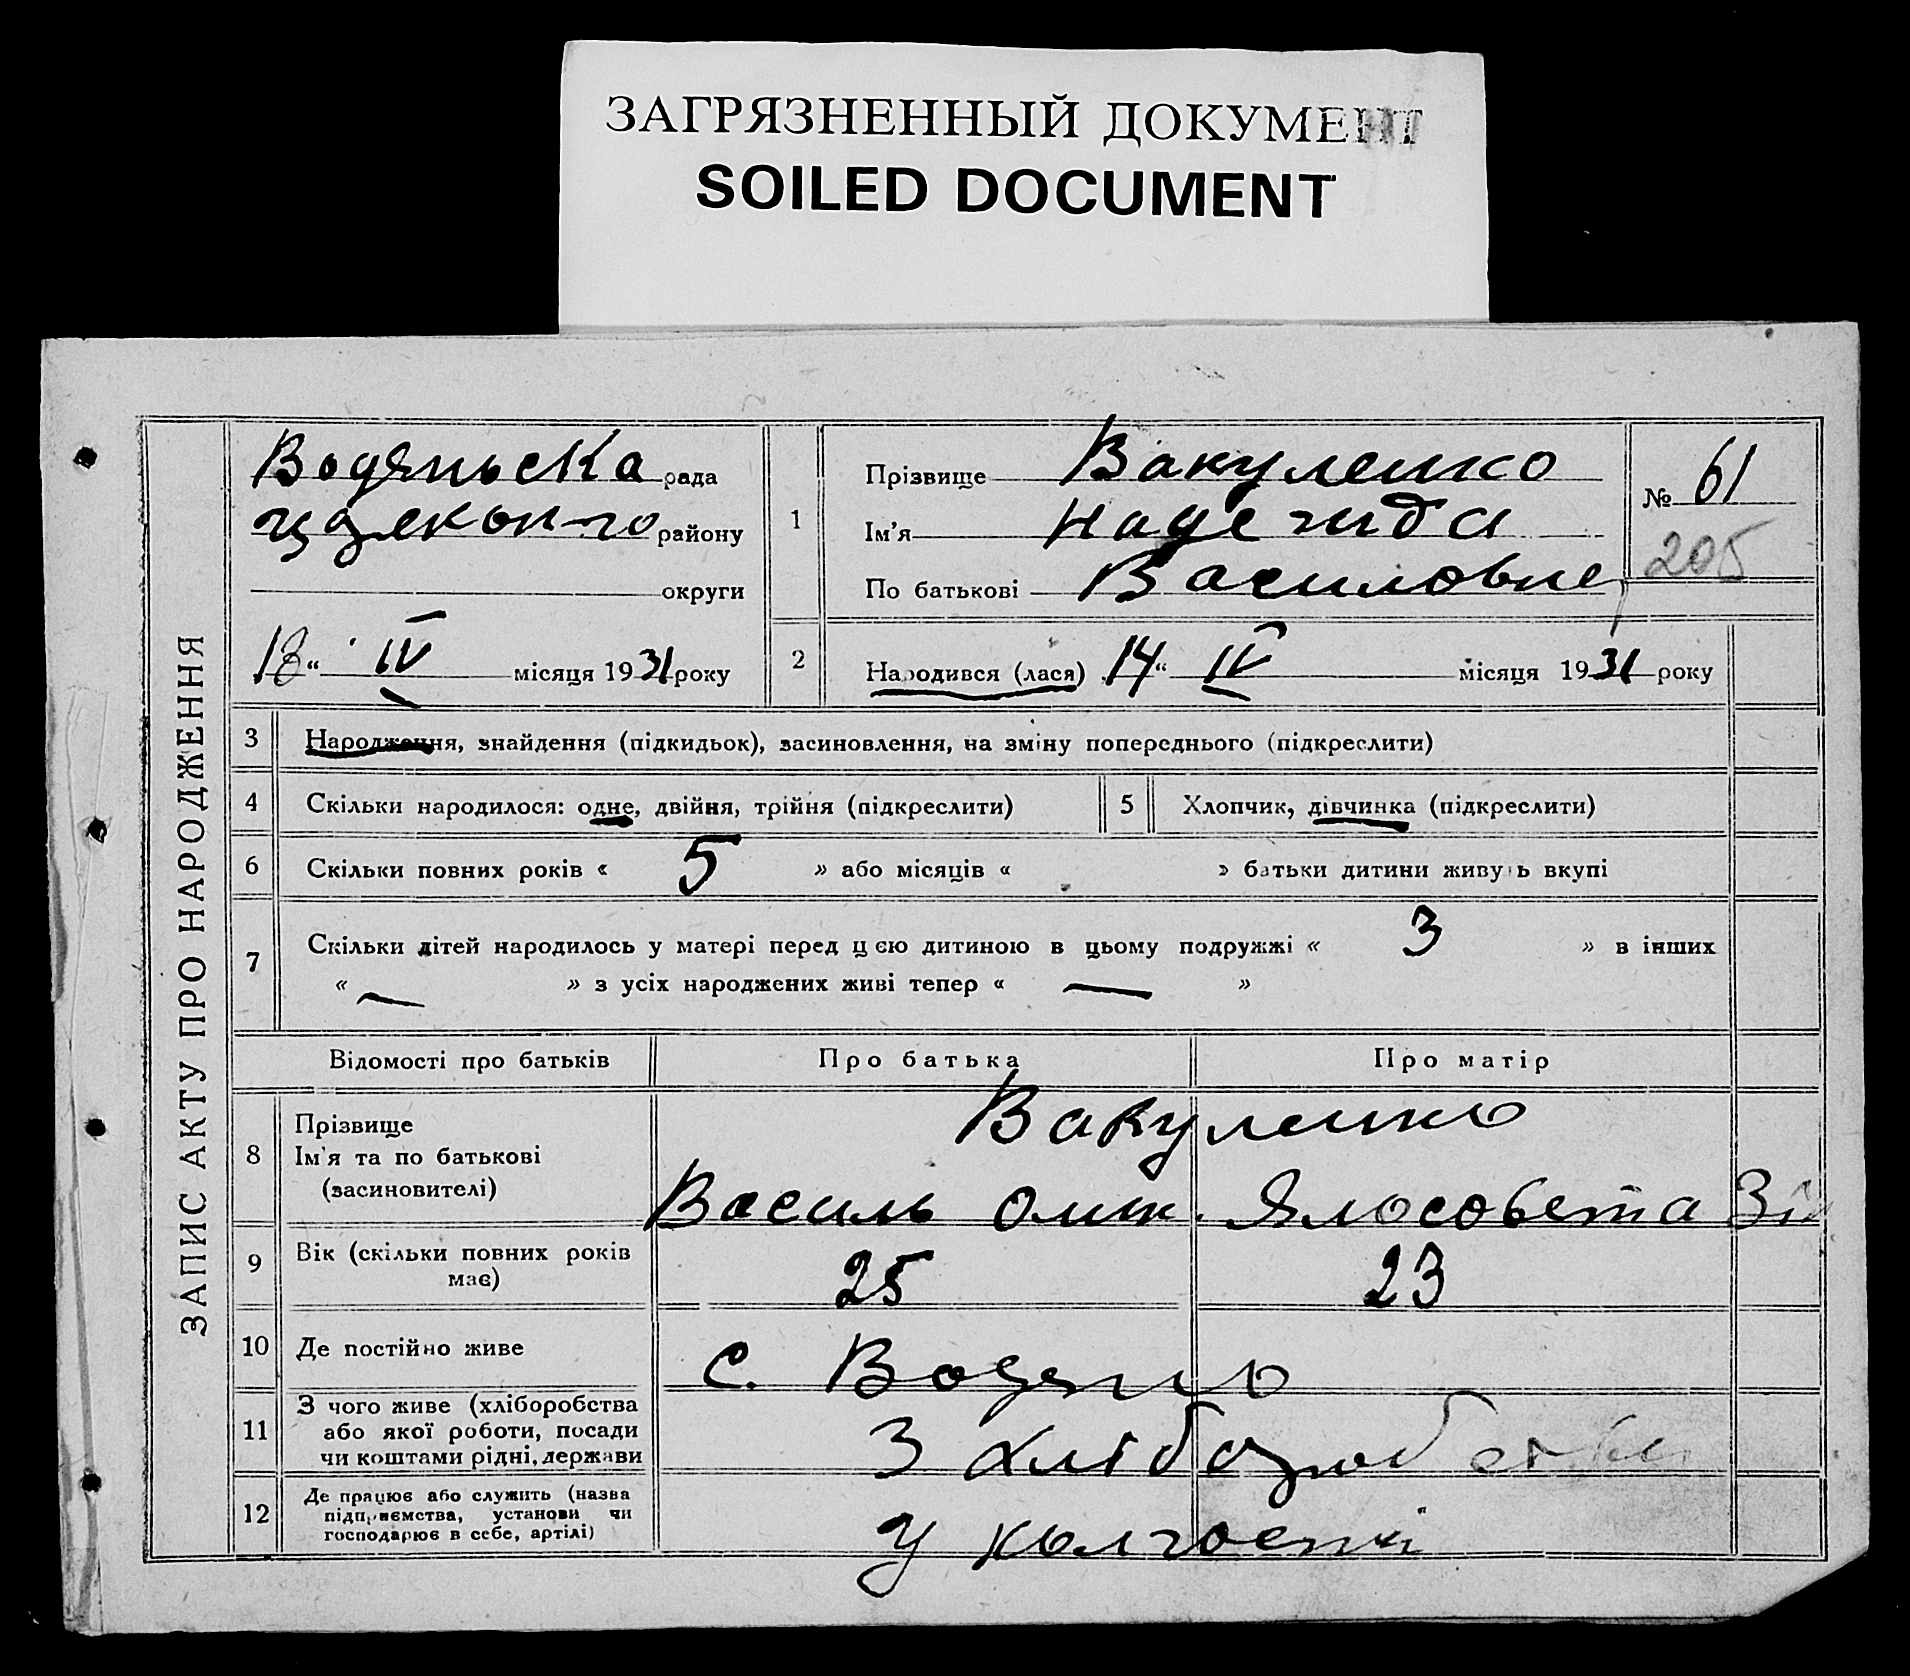 ЗАГРЯЗНЕННЫЙ ДОКУМЕНТ
SOILED DOCUMENT
ЗАПИС АКТУ ПРО НАРОДЖЕННЯ
Водяньска рада
району
округи
18 “ IV місяця 1931 року
1
Прізвище Вакуленко
Ім'я Надежда
По батькові Василовне
№ 61
205
2
Народився (лася) 14 “ IV місяця 1931 року
3 Народження, знайдення (підкидьок), засиновлення, на зміну попереднього (підкреслити)
4 Скільки народилося: одне, двійня, трійня (підкреслити)
5 Хлопчик, дівчинка (підкреслити)
6 Скільки повних років « 5 » або місяців « » батьки дитини живуть вкупі
7 Скільки дітей народилось у матері перед цією дитиною в цьому подружжі « 3 » в інших
« — » з усіх народжених живі тепер « — »
Відомості про батьків Про батька Про матір
8 Прізвище
Ім'я та по батькові
(засиновителі)
Вакуленко
Василь
9 Вік (скільки повних років
має)
25 23
10 Де постійно живе с. Водяно
11 З чого живе (хліборобства
або якої роботи, посади
чи коштами рідні, держави
З хліборобства
12 Де працює або служить (назва
підприємства, установи чи
господарює в себе, артілі)
у колгоспі